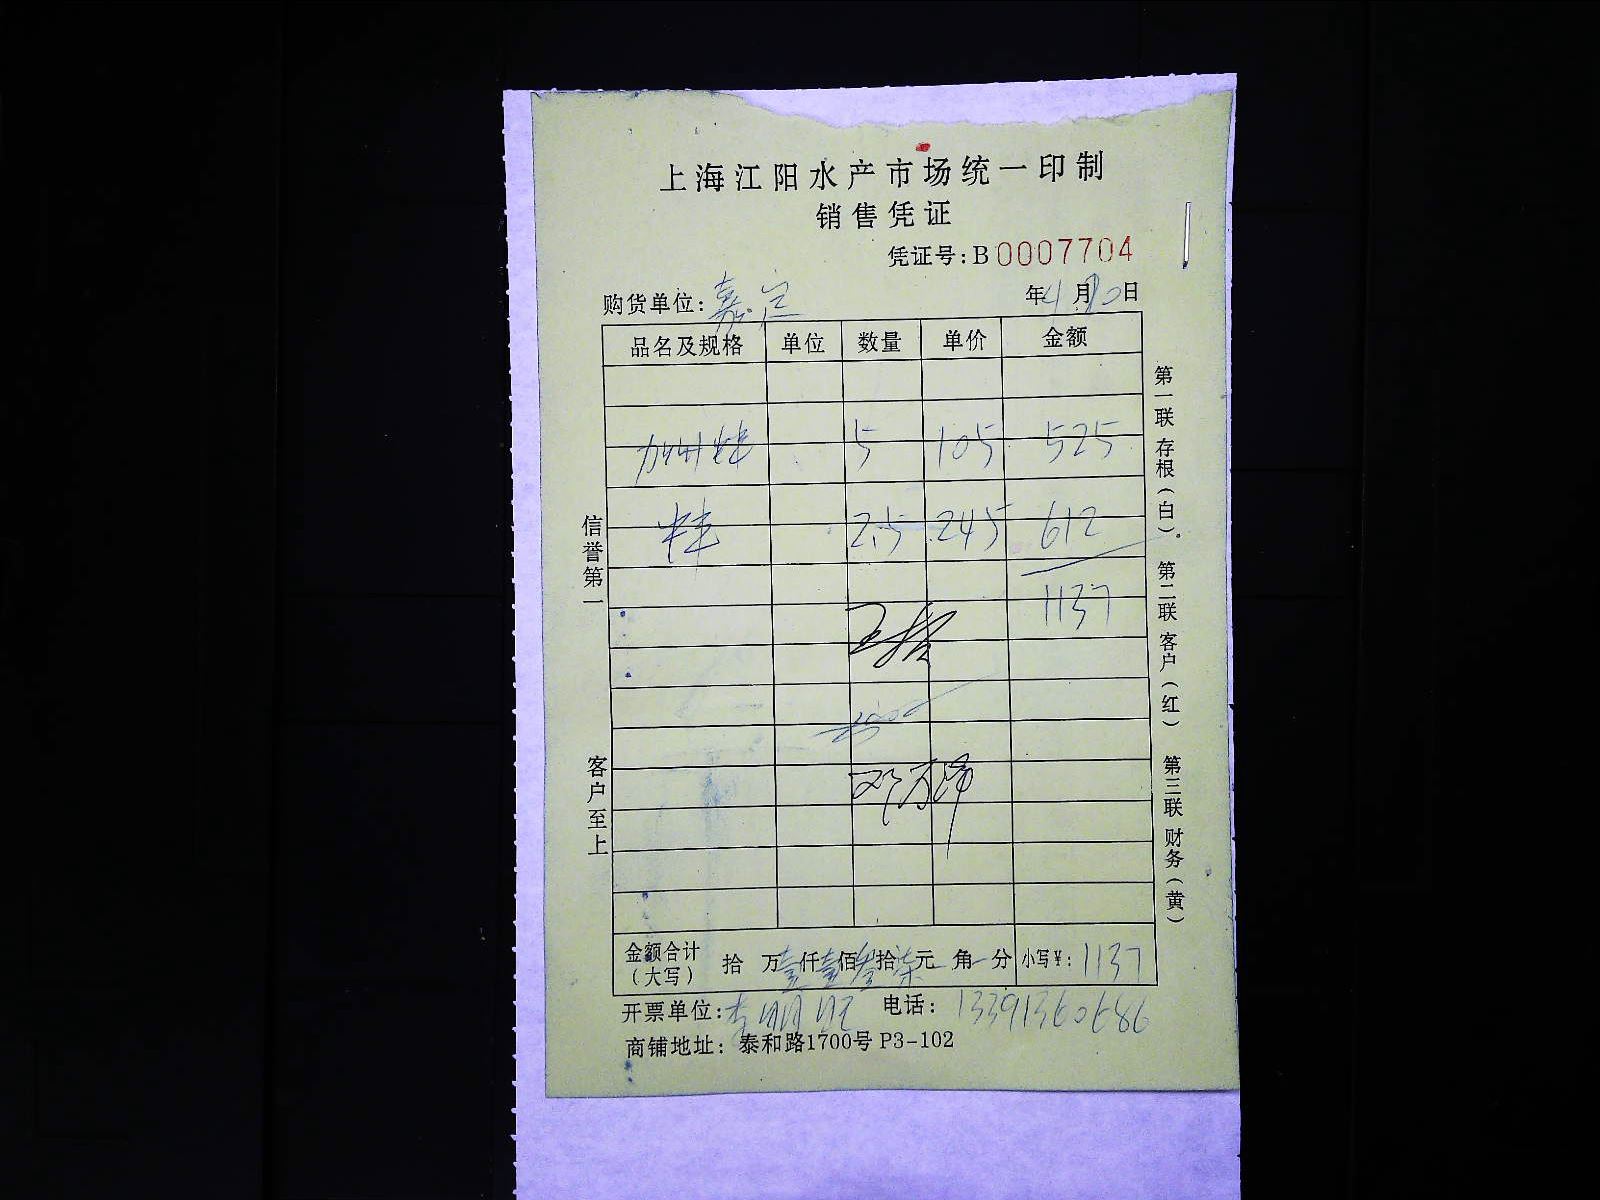 上海江阳水产市场统一印制
销售凭证
凭证号: B 0007704
购货单位: 嘉兰 年 4 月 10 日
品名及规格 单位 数量 单价 金额
加州蚌 5 105 525
蚌 2.5 245 612
1137
王
邓万沛
金额合计(大写) 拾 万壹仟壹佰叁拾柒元 角 分 小写¥: 1137
开票单位: 李明旺 电话: 13391360686
商铺地址: 泰和路1700号 P3-102
信誉第一
客户至上
第一联 存根(白)
第二联 客户(红)
第三联 财务(黄)